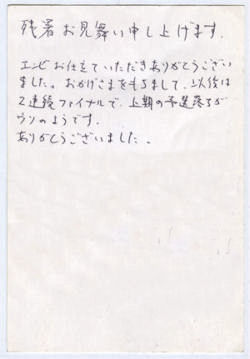 残暑お見舞い申し上げます.
エンビお仕立ていただきありがとうござい
ました。おかげさまをもちまして、以後は
2連続ファイナルで、上期の予選落ちが
ウソのようです.
ありがとうございました。